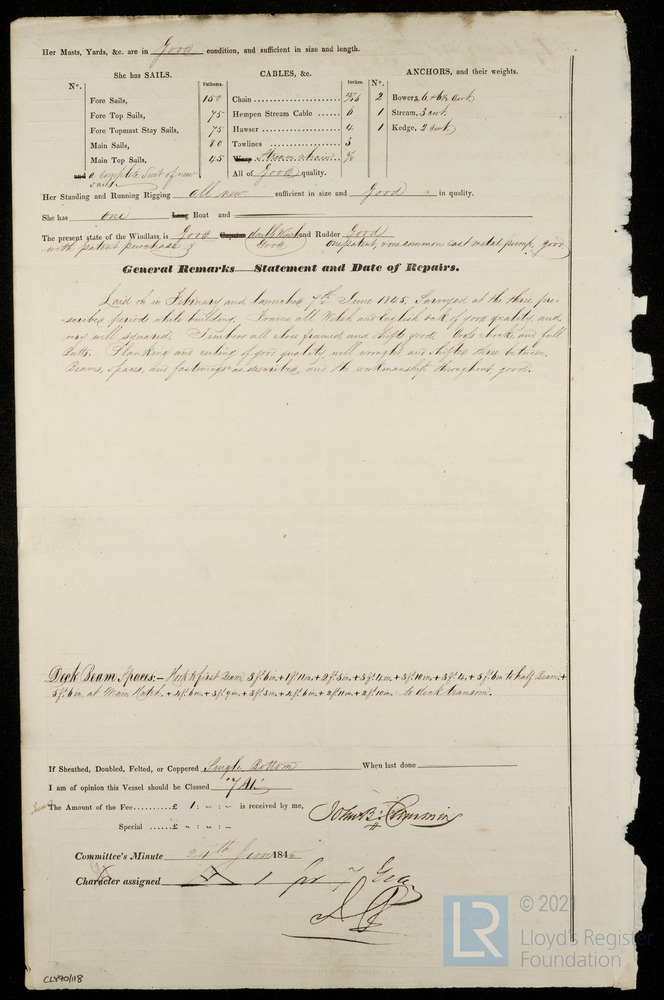 Her Masts, Yards, &c. are in Good condition, and sufficient in size and length.
She has SAILS. CABLES, &c. ANCHORS, and their weights.
N°. Fathoms. Inches. N°.
Fore Sails, 150 Chain 2 Bowers, 6 & 6½ cwt
Fore Top Sails, 75 Hempen Stream Cable 6 1 Stream, 3 cwt
Fore Topmast Stay Sails, 75 Hawser 4 1 Kedge, 2 cwt
Main Sails, 80 Towlines 3
Main Top Sails, 45 Warp Stream chain
and a complete suit of new sails All of Good quality.
Her Standing and Running Rigging all new sufficient in size and Good in quality.
She has one Long Boat and
The present state of the Windlass is Good Capstan double Winch and Rudder Good
with patent purchase & Good one patent, & one common cast metal pump, good
General Remarks Statement and Date of Repairs.
Laid on in February and launched 7th June 1845. Surveyed at the three pre-
-scribed periods while building. Frame all Welsh and English oak of good quality, and
very well squared. Timbers all close framed and shifts good. Cross chocks and full
Butts. Planking and ceiling of good quality, well wrought, and shifted three between.
Beams, spaces, and fastenings as described, and the workmanship throughout, good.
Deck Beam Spaces:- to first Beam, 3 ft 6 in + 1 ft 11 in + 2 ft 3 in + 3 ft 4 in + 3 ft 10 in + 3 ft 4 + 3 ft 6 in to half Beam +
5 ft 6 in at Main Hatch + 4 ft 6 in + 3 ft 9 in + 3 ft 3 in + 4 ft 6 in + 2 ft 11 in + 2 ft 10 in to deck transom.
If Sheathed, Doubled, Felted, or Coppered Single Bottom When last done
I am of opinion this Vessel should be Classed 7 A1
The Amount of the Fee £ 1 : - : - is received by me,
Special £ : - : -
Committee's Minute 24th June 1845
Character assigned A 1 for 7
CLY90/118
© 2021
LR Lloyd's Register
Foundation